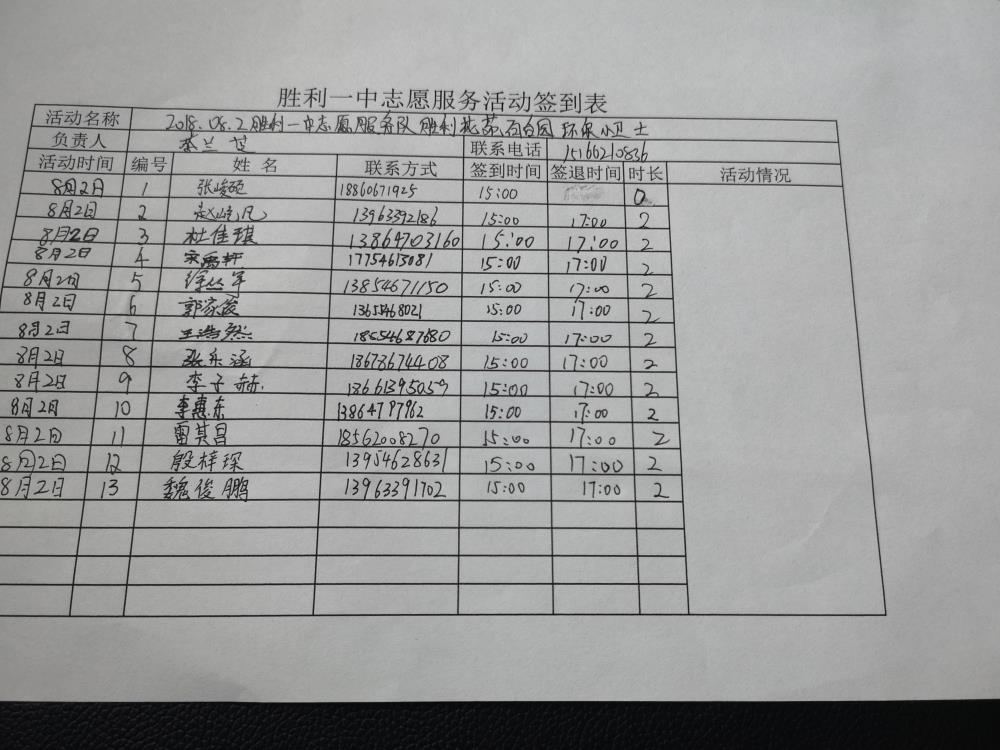 胜利一中志愿服务活动签到表
活动名称 2018.08.2胜利一中志愿服务队胜利花苑百合园环保小卫士
负责人 李兰 联系电话 15166210836
活动时间 编号 姓名 联系方式 签到时间 签退时间 时长 活动情况
8月2日 1 张峻硕 18860671925 15:00 0
8月2日 2 赵 凡 13963392186 15:00 17:00 2
8月2日 3 杜佳琪 13864703160 15:00 17:00 2
8月2日 4 宋禹轩 17754613081 15:00 17:00 2
8月2日 5 徐丛军 13854671150 15:00 17:00 2
8月2日 6 郭家俊 1365468021 15:00 17:00 2
8月2日 7 王浩然 18554687680 15:00 17:00 2
8月2日 8 张东涵 18678674408 15:00 17:00 2
8月2日 9 李子赫 18661395059 15:00 17:00 2
8月2日 10 李惠东 13864797962 15:00 17:00 2
8月2日 11 雷其昌 18562008270 15:00 17:00 2
8月2日 12 殷梓琛 13954628631 15:00 17:00 2
8月2日 13 魏俊鹏 13963391702 15:00 17:00 2